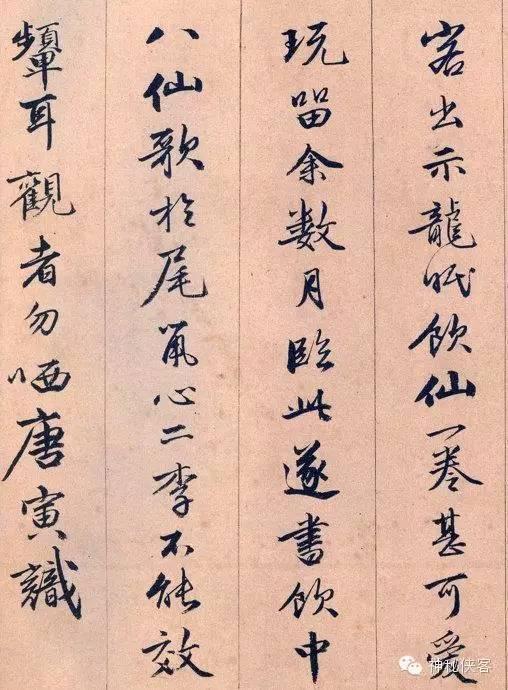 出示龍眠飲仙一卷甚可愛
玩留余数月臨此遂書飲中
八仙歌於尾心二李不能效
顰耳觀者勿哂唐寅識
神秘侠客